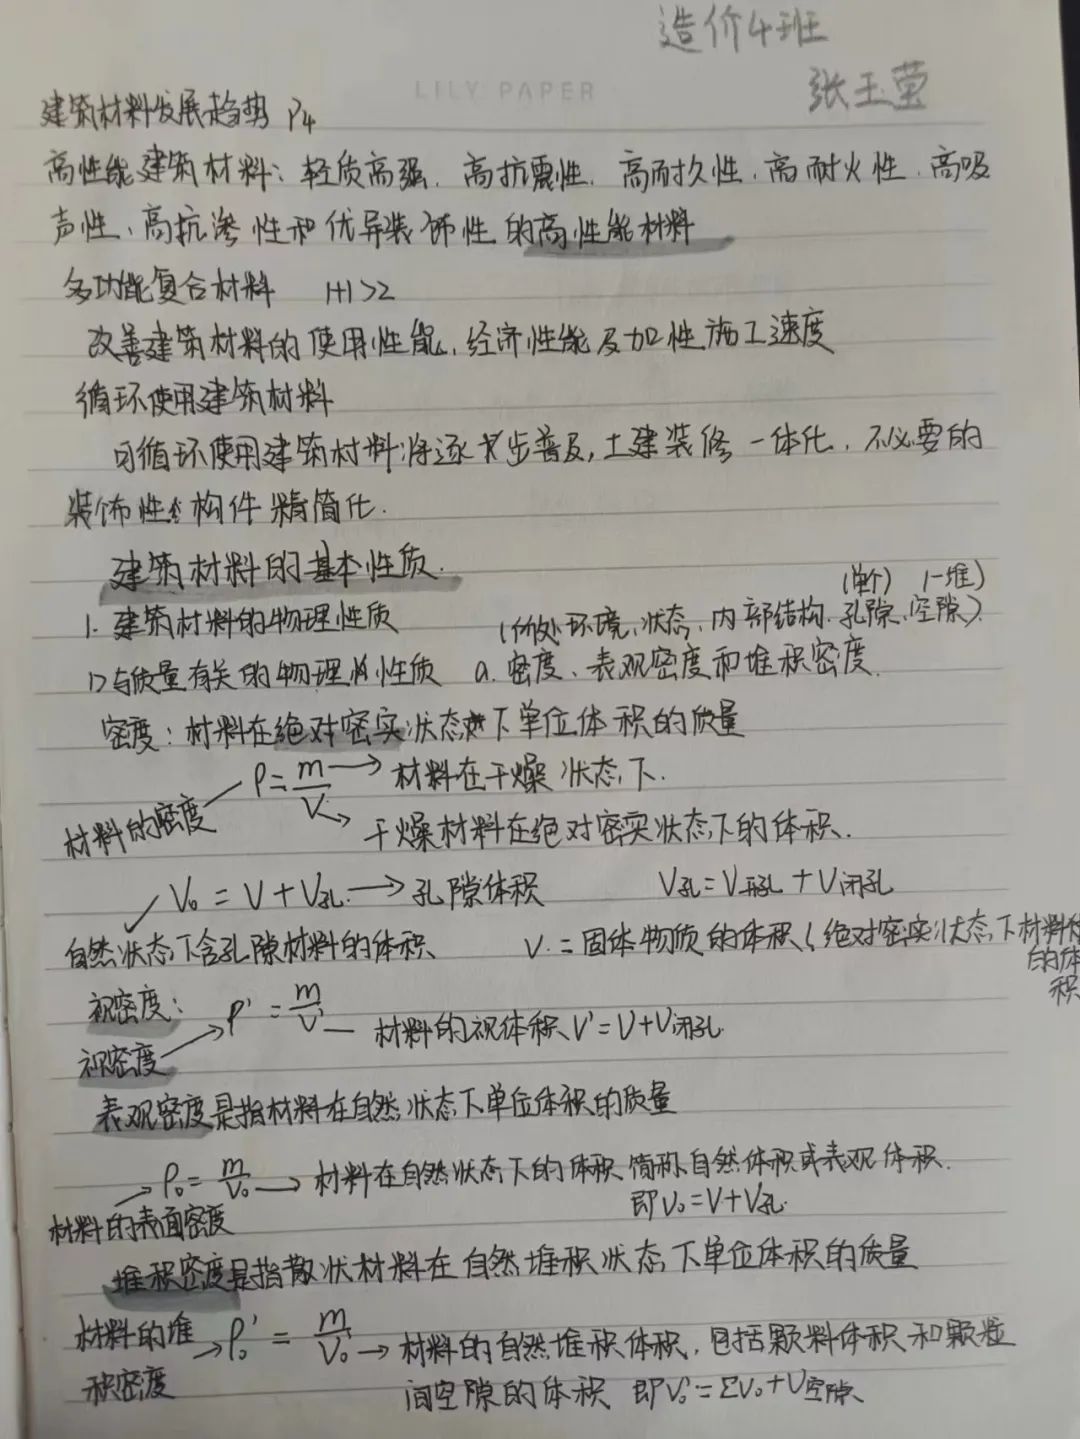 造价4班
LILY PAPER
张玉莹
建筑材料发展趋势 P4
高性能建筑材料：轻质高强、高抗震性、高耐久性、高耐火性、高吸
声性、高抗渗性和优异装饰性的高性能材料
多功能复合材料 1+1>2
改善建筑材料的使用性能，经济性能及加性施工速度
循环使用建筑材料
可循环使用建筑材料将逐步普及，土建装修一体化，不必要的
装饰性构件精简化.
建筑材料的基本性质.
(单个) (一堆)
1. 建筑材料的物理性质 (价处环境、状态、内部结构. 孔隙、空隙)
1)与质量有关的物理性质 a. 密度、表观密度和堆积密度.
密度：材料在绝对密实状态下单位体积的质量
ρ=m/V → 材料在干燥状态下.
材料的密度 → 干燥材料在绝对密实状态下的体积.
V₀ = V + V孔. → 孔隙体积 V孔=V开孔 + V闭孔
自然状态下含孔隙材料的体积 V. = 固体物质的体积(绝对密实状态下材料
的体
积
视密度： ρ' = m/V' — 材料的视体积V'=V+V闭孔.
视密度
表观密度是指材料在自然状态下单位体积的质量
ρ₀= m/V₀ → 材料在自然状态下的体积 简称自然体积或表观体积.
材料的表面密度 即V₀=V+V孔.
堆积密度是指散状材料在自然堆积状态下单位体积的质量
材料的堆 → ρ₀' = m/V₀' → 材料的自然堆积体积，包括颗料体积和颗粒
积密度 间空隙的体积 即V₀'=ΣV₀+V空隙